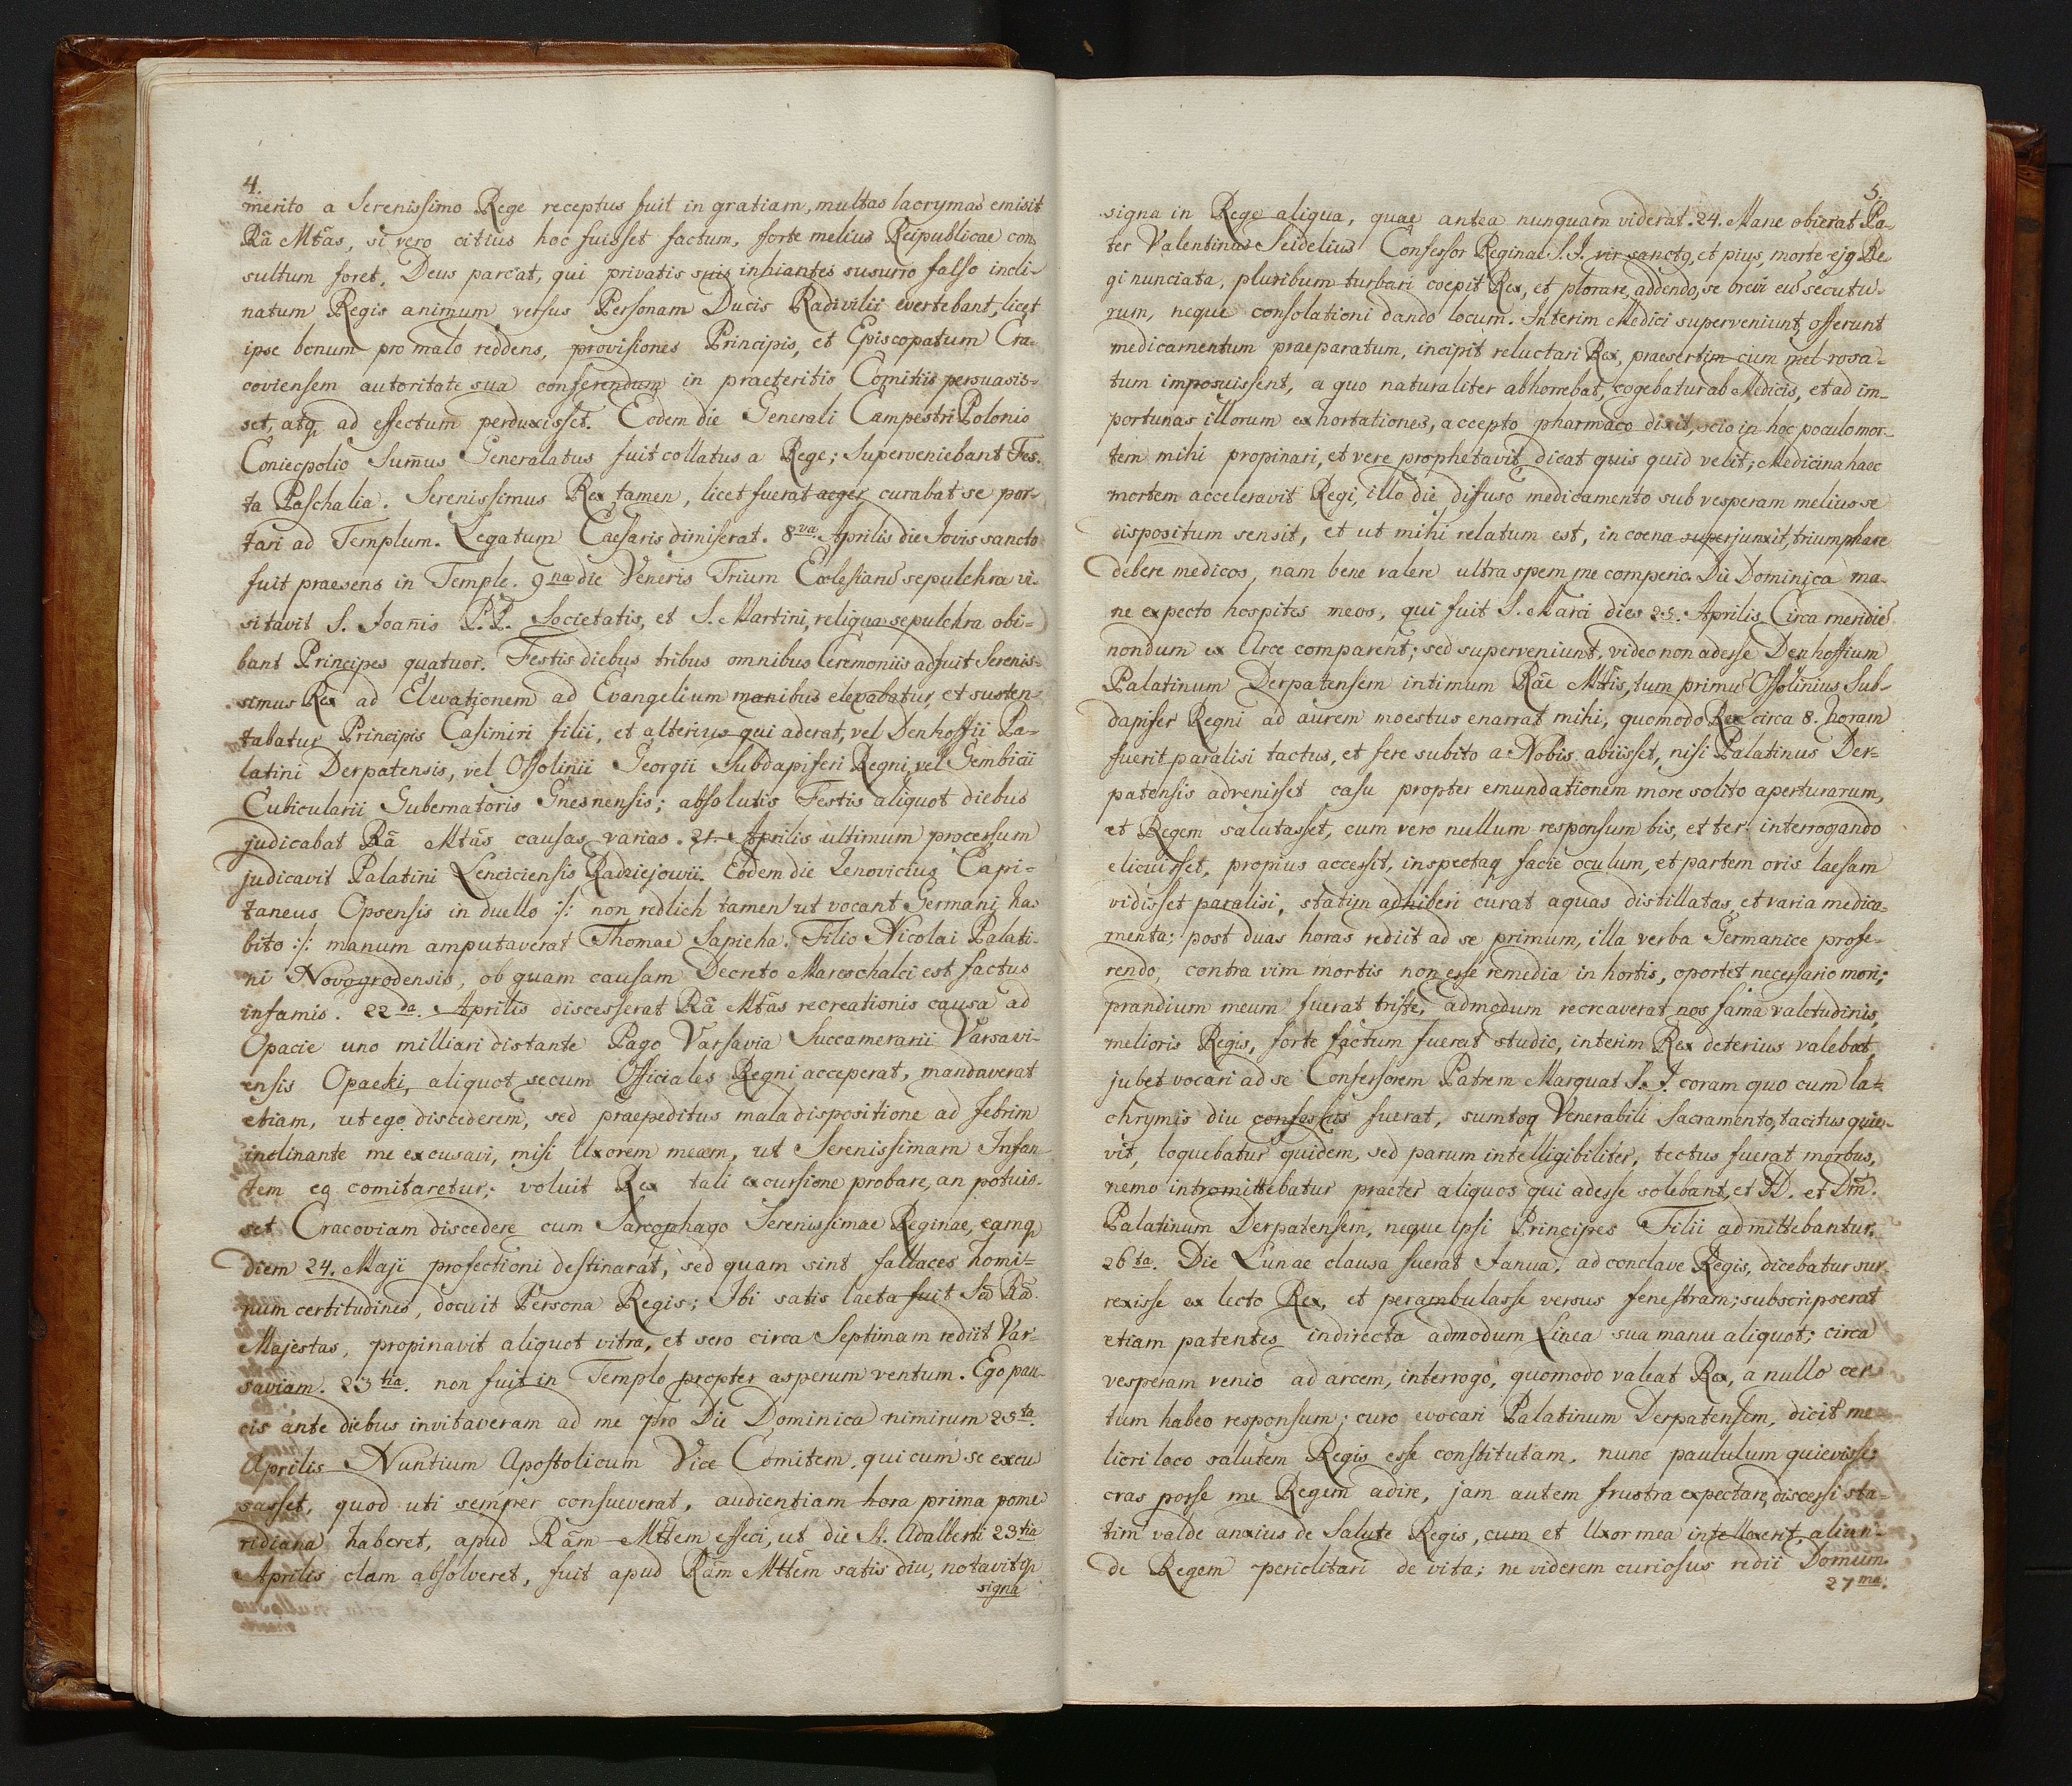 4.
merito a Serenissimo Rege receptus fuit in gratiam, multas lacrymas emisit
Rā Mtās, si vero citius hoc fuisset factum, forte melius Reipublicae con
sultum foret, Deus parcat, qui privatis suis inhiantes susurro falso incli-
natum Regis animum versus Personam Ducis Radivilii evertebant, licet
ipse bonum pro malo reddens, provisiones Principis, et Episcopatum Cra-
coviensem autoritate sua conferendum in praeteritis Comitiis persuasis-
set, atq ad effectum perduxisset. Eodem die Generali Campestri Polonio
Coniecpolio Sum̄us Generalatus fuit collatus a Rege; Superveniebant Fes-
ta Paschalia. Serenissimus Rex tamen, licet fuerat aeger curabat se por-
tari ad Templum. Legatum Caesaris dimiserat. 8va Aprilis die Jovis sancto
fuit praesens in Templo. 9na die Veneris Trium Ecclesianū sepulchra vi-
sitavit S. Joan̄is P.P. Societatis, et S. Martini, reliqua sepulchra obi-
bant Principes quatuor. Festis diebus tribus omnibus Ceremoniis adfuit Serenis-
simus Rex ad Elevationem ad Evangelium manibus elevabatur, et susten-
tabatur Principis Casimiri filii, et alterius qui aderat, vel Denhoffii Pa-
latini Derpatensis, vel Ossolinii Georgii Subdapiferi Regni, vel Gembicii
Cubicularii Gubernatoris Gnesnensis; absolutis Festis aliquot diebus
judicabat Rā Mtās causas varias. 21. Aprilis ultimum processum
judicavit Palatini Lenciciensis Radziejowii. Eodem die Zenovicius Capi-
taneus Opsensis in duello :/: non redlich tamen ut vocant Germani ha-
bito :/: manum amputaverat Thomae Sapieha. Filio Nicolai Palati-
ni Novogrodensis, ob quam causam Decreto Mareschalci est factus
infamis. 22da. Aprilis discesserat Rā Mtās recreationis causa ad
Opacie uno milliari distante Pago Varsavia Succamerarii Varsavi-
ensis Opaeki, aliquot secum Officiales Regni acceperat, mandaverat
etiam, ut ego discederem, sed praepeditus mala dispositione ad febrim
inclinante me excusavi, misi Uxorem meam, ut Serenissimam Infan-
tem eq comitaretur; voluit Rex tali excursione probare, an potuis-
set Cracoviam discedere cum Sarcophago Serenissimae Reginae, eamq
diem 24. Maji profectioni destinarat, sed quam sint fallaces homi-
num certitudines, docuit Persona Regis; Ibi satis laeta fuit Sā Rā
Majestas, propinavit aliquot vitra, et sero circa Septimam rediit Var-
saviam. 23tia. non fuit in Templo propter asperum ventum. Ego pau-
cis ante diebus invitaveram ad me pro Die Dominica nimirum 25ta.
Aprilis Nuntium Apostolicum Vice Comitem, qui cum se excu
sasset, quod uti semper consueverat, audientiam hora prima pome
ridiana haberet, apud Rām Mttēm effeci, ut die St. Adalberti 23tia
Aprilis clam absolveret, fuit apud Rām Mttēm satis diu, notavitq
signa
5.
signa in Rege aliqua, quae antea nunquam viderat. 24. Mane obierat Pa-
ter Valentinus Seidelius Confessor Reginae S.J. vir sanctq, et pius, morte ejq Re-
gi nunciata, pluribum turbari coepit Rex, et plorare, addendo, se brevi eū secutu-
rum, neque consolationi dando locum. Interim Medici superveniunt, offerunt
medicamentum praeparatum, incipit reluctari Rex, praesertim cum mel rosa-
tum imposuissent, a quo naturaliter abhorrebat, cogebatur ab Medicis, et ad im-
portunas illorum exhortationes, accepto pharmaco dixit, scio in hoc poculo mor-
tem mihi propinari, et vere prophetavit dicat quis quid velit, Medicina haec
mortem acceleravit Regi, illo die diffuso medicamento sub vesperam melius se
dispositum sensit, et ut mihi relatum est, in coena superjunxit, triumphare
debere medicos, nam bene valere ultra spem me comperio. Die Dominica ma-
ne expecto hospites meos, qui fuit S. Marci dies 25. Aprilis. Circa meridiē
nondum ex Arce comparent; sed superveniunt, video non adesse Denhoffium
Palatinum Derpatensem intimum Rāe Mttis, tum primū Ossolinius Sub-
dapifer Regni ad aurem moestus enarrat mihi, quomodo Rex circa 8. horam
fuerit paralisi tactus, et fere subito a Nobis abiisset, nisi Palatinus Der-
patensis advenisset casu propter emundationem more solito aperturarum,
et Regem salutasset, cum vero nullum responsum bis, et ter interrogando
elicuisset, propius accessit, inspectaq facie oculum, et partem oris laesam
vidisset paralisi, statim adhiberi curat aquas distillatas, et varia medica-
menta; post duas horas rediit ad se primum, illa verba Germanice profe-
rendo, contra vim mortis non esse remedia in hortis, oportet necessario mori;
prandium meum fuerat triste, admodum recreaverat nos fama valetudinis,
melioris Regis, forte factum fuerat studio, interim Rex deterius valebat,
jubet vocari ad se Confessorem Patrem Marquat S.J. coram quo cum la-
chrymis diu confessus fuerat, sumtoq Venerabili Sacramento, tacitus quie-
vit, loquebatur quidem, sed parum intelligibiliter, tectus fuerat morbus,
nemo intromittebatur praeter aliquos qui adesse solebant, et D. et Dm̄.
Palatinum Derpatensem, neque ipsi Principes Filii admittebantur.
26ta. Die Lunae clausa fuerat Janua, ad conclave Regis, dicebatur sur-
rexisse ex lecto Rex, et perambulasse versus fenestram; subscripserat
etiam patentes indirecta admodum Linea sua manu aliquot; circa
vesperam venio ad arcem, interrogo, quomodo valeat Rex, a nullo cer-
tum habeo responsum; curo evocari Palatinum Derpatensem, dicit me-
liori loco salutem Regis esse constitutam, nunc paululum quievisse;
cras posse me Regem adire, jam autem frustra expectare, discessi sta-
tim valde anxius de Salute Regis, cum et Uxor mea intellexerit, aliun-
de Regem periclitari de vita; ne viderem curiosus redii Domum.
27ma.